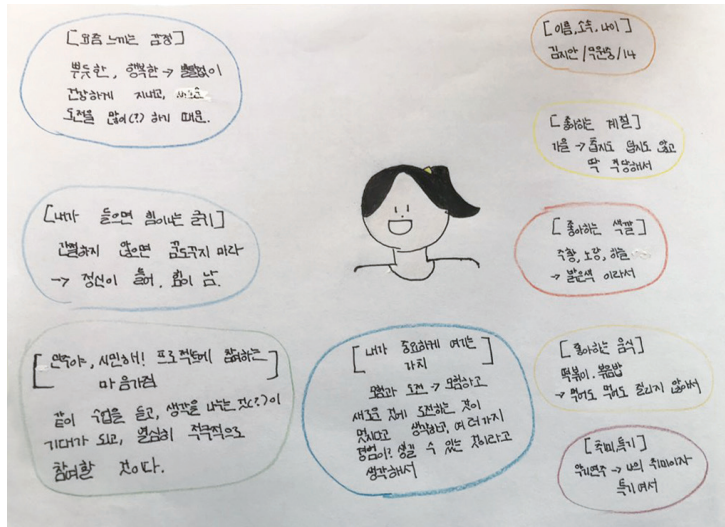 [요즘 느끼는 감정]
뿌듯한, 행복한 → 별탈없이
건강하게 지내고, 새로운
도전을 많이(?) 하기 때문.
[내가 들으면 힘이나는 글귀]
간절하지 않으면 꿈도꾸지 마라
→ 정신이 들어. 힘이 남.
[민주야, 시민해! 프로젝트에 참여하는
마음가짐]
같이 수업을 듣고, 생각을 나누는 것(?)이
기대가 되고, 열심히 적극적으로
참여할 것이다.
[내가 중요하게 여기는
가치]
모험과 도전 → 모험하고
새로운 것에 도전하는 것이
멋지다고 생각하고, 여러가지
경험이? 생길 수 있는 것이라고
생각해서
[이름, 소속, 나이]
김지안/목운중/14
[좋아하는 계절]
가을 → 춥지도 덥지도 않고
딱 적당해서
[좋아하는 색깔]
주황, 노랑, 하늘
→ 밝은색 이라서
[좋아하는 음식]
떡볶이, 볶음밥
→ 먹어도 먹어도 질리지 않아서
[취미, 특기]
악기연주 → 나의 취미이자
특기여서